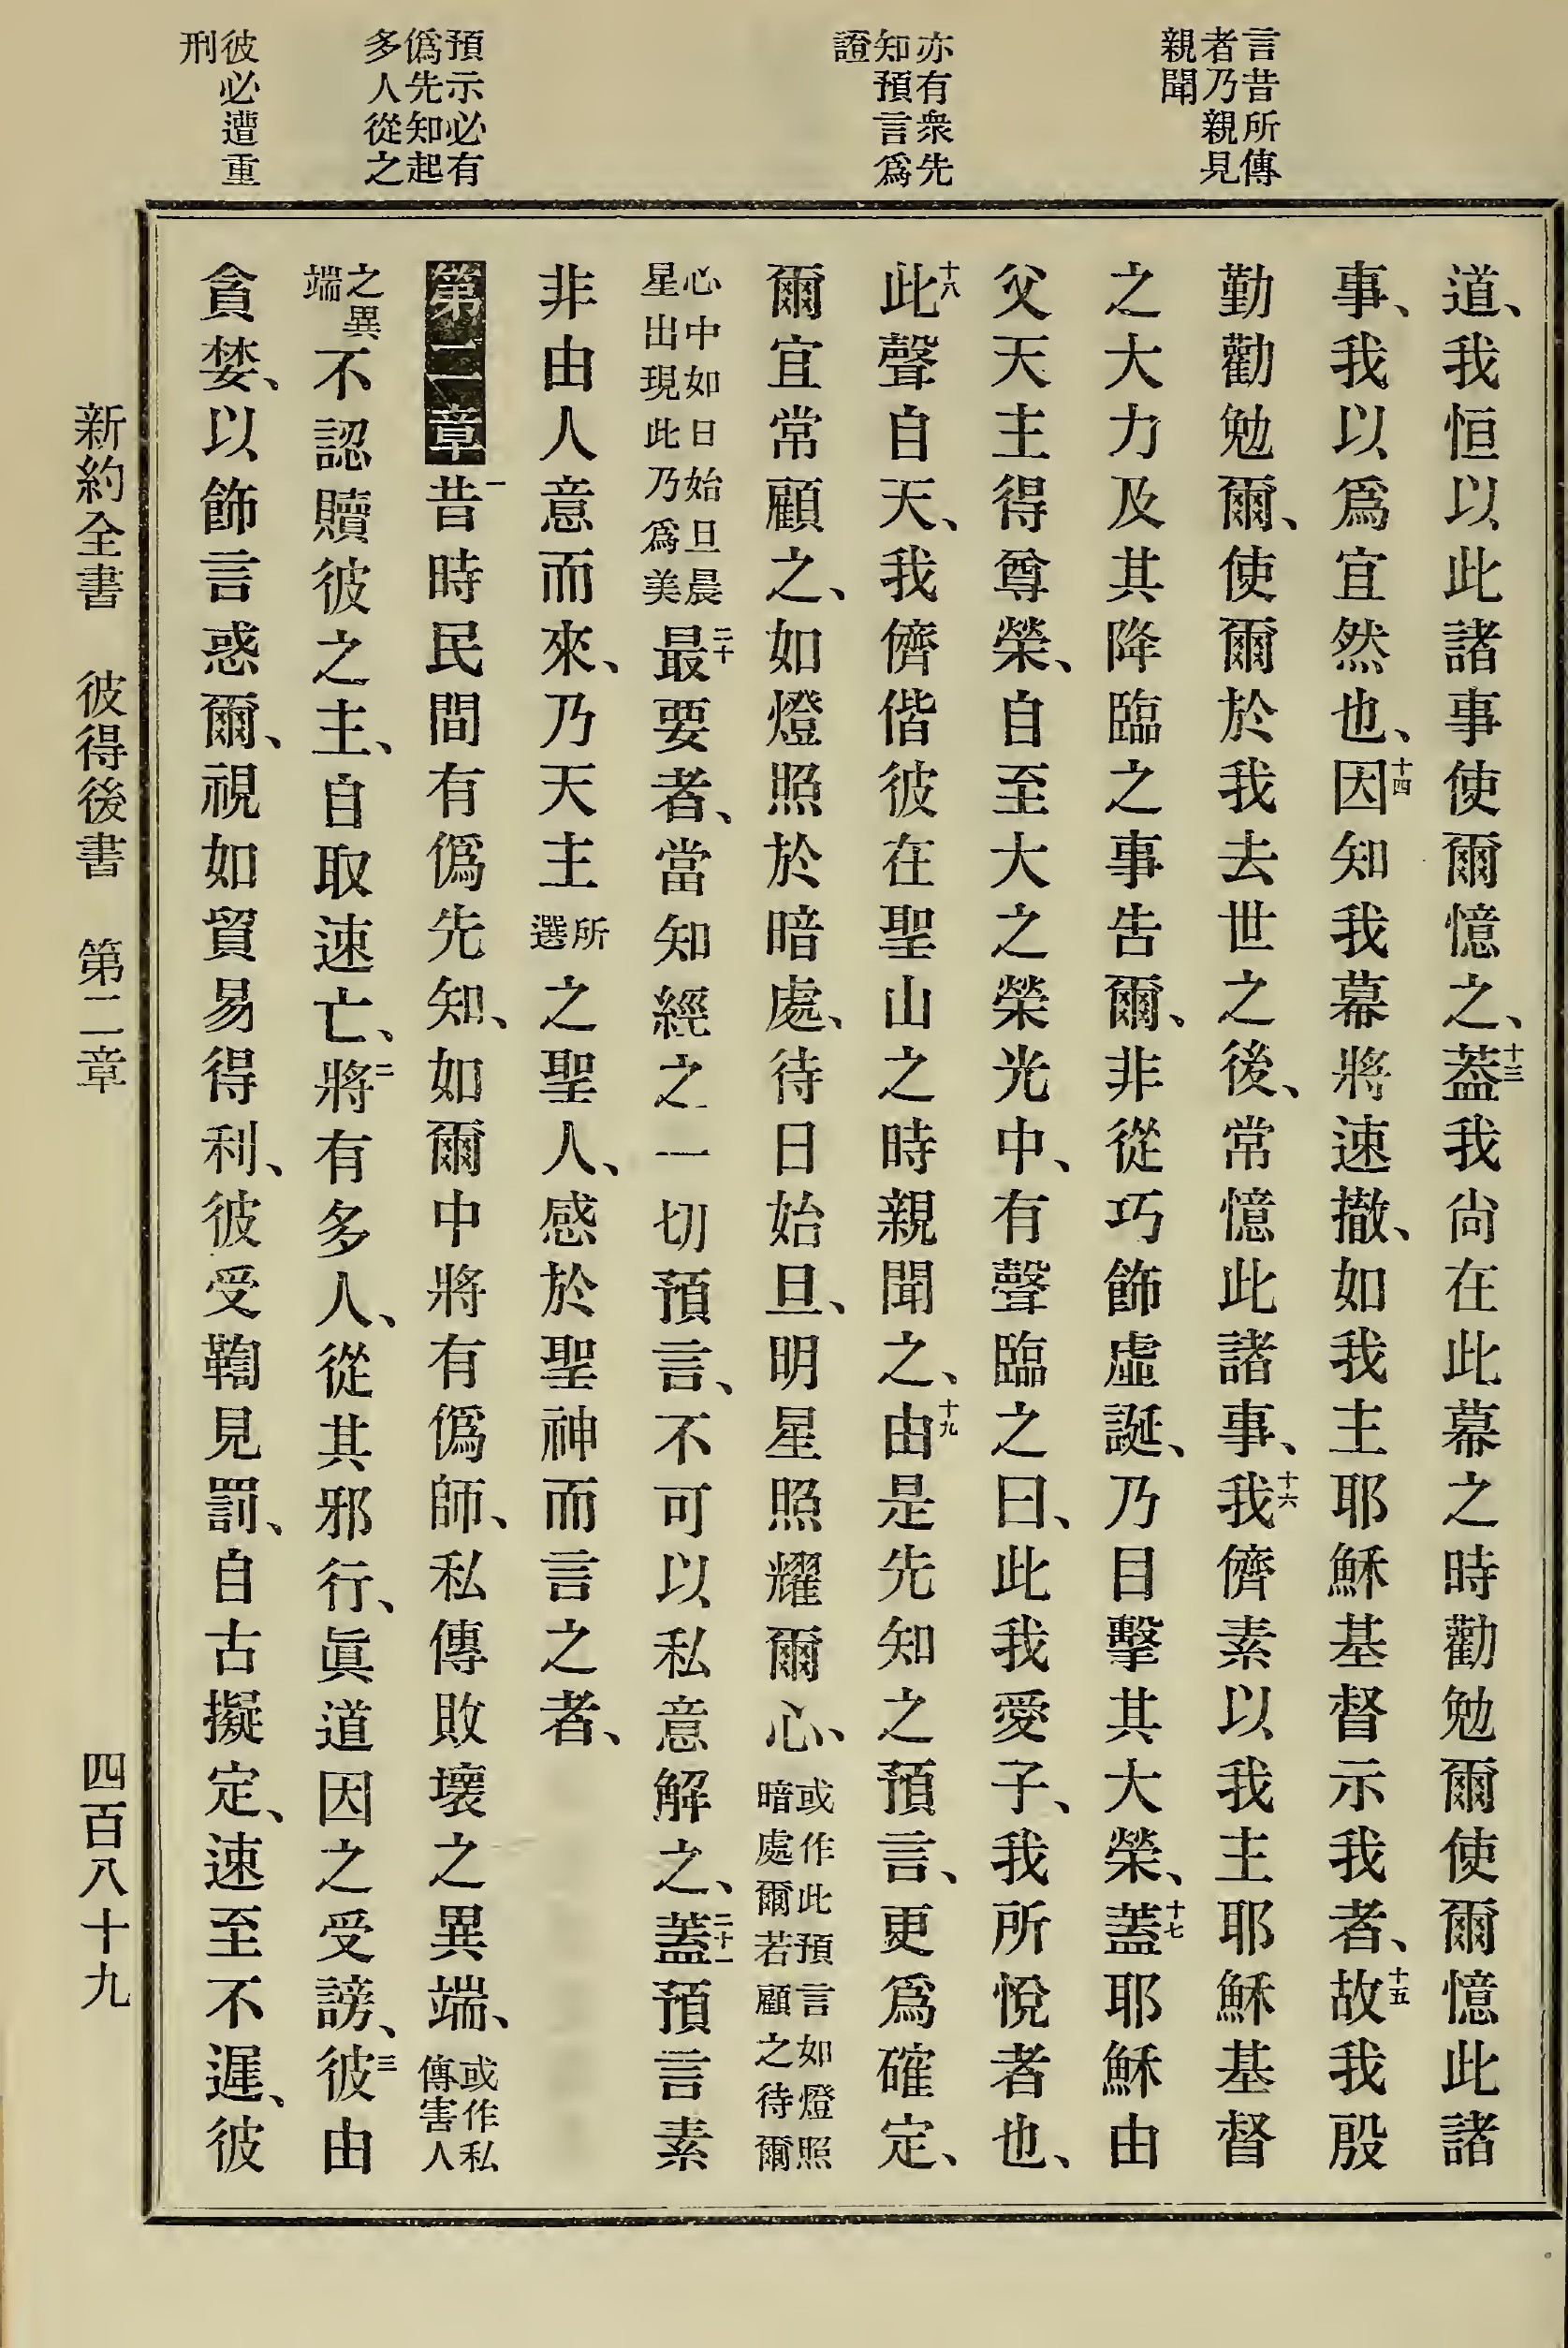 言昔所傳
者乃親見
親聞
亦有衆先
知預言爲
證
預示必有
僞先知起
多人從之
彼必遭重
刑
道、我恒以此諸事使爾憶之、十三蓋我尙在此幕之時勸勉爾使爾憶此諸
事、我以爲宜然也、十四因知我幕將速撤、如我主耶穌基督示我者、十五故我殷
勤勸勉爾、使爾於我去世之後、常憶此諸事、十六我儕素以我主耶穌基督
之大力及其降臨之事告爾、非從巧飾虛誕、乃目擊其大榮、十七蓋耶穌由
父天主得尊榮、自至大之榮光中、有聲臨之曰、此我愛子、我所悅者也、
十八此聲自天、我儕偕彼在聖山之時親聞之、十九由是先知之預言、更爲確定、
爾宜常顧之、如燈照於暗處、待日始旦、明星照耀爾心、或作此預言如燈照暗處爾若顧之待爾
心中如日始旦晨星出現此乃爲美二十最要者、當知經之一切預言、不可以私意解之、二十一蓋預言素
非由人意而來、乃天主所選之聖人、感於聖神而言之者、
第二章一昔時民間有僞先知、如爾中將有僞師、私傳敗壞之異端、或作私傳害人
之異端不認贖彼之主、自取速亡、二將有多人、從其邪行、眞道因之受謗、三彼由
貪婪、以飾言惑爾、視如貿易得利、彼受鞫見罰、自古擬定、速至不遲、彼
新約全書 彼得後書 第二章 四百八十九